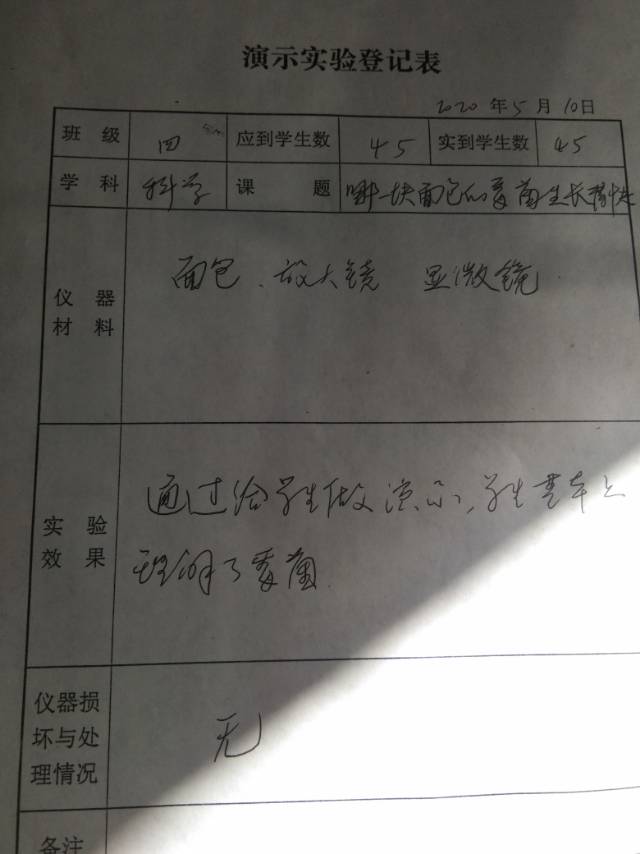 演示实验登记表
2020 年 5 月 10 日
班 级 四 应到学生数 45 实到学生数 45
学 科 科学 课 题 哪一块面包的霉菌生长得快
仪 器
材 料
面包、放大镜 显微镜
实 验
效 果
通过给学生做演示,学生基本上
理解了霉菌
仪器损
坏与处
理情况
无
备注